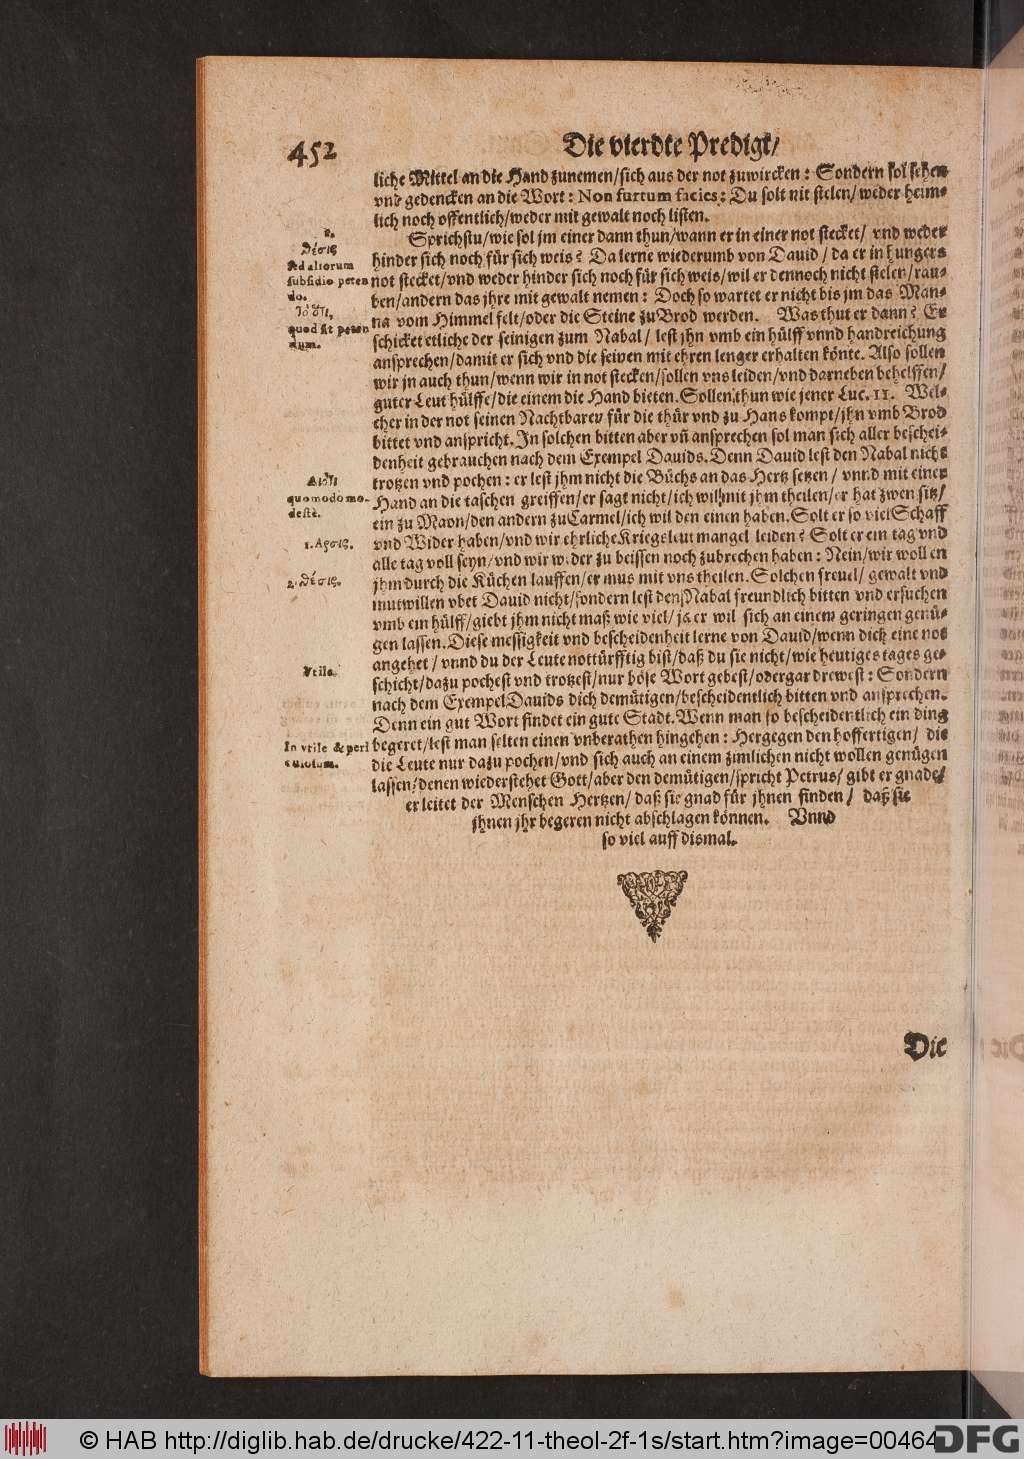 452
Die vierdte Predigt/
liche Mittel an die Hand zunemen/sich aus der not zuwircken: Sondern sol sehen
vnd gedencken an die Wort: Non furtum facies: Du solt nit stelen/ weder heim-
lich noch offentlich/weder mit gewalt noch listen.
Sprichstu/wie sol jm einer dann thun/wann er in einer not stecket/ vnd weder
hinder sich noch für sich weis? Da lerne wiederumb von Dauid/ da er in hungers
not stecket/vnd weder hinder sich noch für sich weis/wil er dennoch nicht stelen/rau-
ben/andern das jhre mit gewalt nemen: Doch so wartet er nicht bis jm das Man-
na vom Himmel felt/oder die Steine zu Brod werden. Was thut er dann? Er
schicket etliche der seinigen zum Nabal/ lest jhn vmb ein hülff vnnd handreichung
ansprechen/damit er sich vnd die seinen mit ehren lenger erhalten könte. Also sollen
wir jn auch thun/wenn wir in not stecken/sollen vns leiden/vnd darneben behelffen/
guter Leut hülffe/die einem die Hand bieten. Sollen thun wie jener Luc. 11. Wel-
cher in der not seinen Nachtbaren für die thür vnd zu Hans kompt/jhn vmb Brod
bittet vnd anspricht. In solchen bitten aber vn̄ ansprechen sol man sich aller beschei-
denheit gebrauchen nach dem Exempel Dauids. Denn Dauid lest den Nabal nicht
trotzen vnd pochen: er lest jhm nicht die Büchs an das Hertz setzen/ vnnd mit einer
Hand an die taschen greiffen/er sagt nicht/ich wil mit jhm theilen/er hat zwen sitz/
ein zu Maon/den andern zu Carmel/ich wil den einen haben. Solt er so viel Schaff
vnd Wider haben/vnd wir ehrliche Kriegsleut mangel leiden? Solt er ein tag vnd
alle tag voll seyn/vnd wir weder zu beissen noch zubrechen haben: Nein/wir wollen
jhm durch die Küchen lauffen/er mus mit vns theilen. Solchen freuel/ gewalt vnd
mutwillen vbet Dauid nicht/sondern lest den Nabal freundlich bitten vnd ersuchen
vmb ein hülff/giebt jhm nicht maß wie viel/ ja er wil sich an einem geringen genü-
gen lassen. Diese messigkeit vnd bescheidenheit lerne von Dauid/wenn dich eine not
angehet/ vnnd du der Leute nottürfftig bist/daß du sie nicht/wie heutiges tages ge-
schicht/dazu pochest vnd trotzest/nur böse Wort gebest/oder gar drewest: Sondern
nach dem Exempel Dauids dich demütigen/bescheidentlich bitten vnd ansprechen.
Denn ein gut Wort findet ein gute Stadt. Wenn man so bescheidentlich ein ding
begeret/lest man selten einen vnberathen hingehen: Hergegen den hoffertigen/ die
die Leute nur dazu pochen/vnd sich auch an einem zimlichen nicht wollen genügen
lassen/denen wiederstehet Gott/aber den demütigen/spricht Petrus/ gibt er gnade/
er leitet der Menschen Hertzen/ daß sie gnad für jhnen finden/ daß sie
jhnen jhr begeren nicht abschlagen können. Vnnd
so viel auff dismal.
2.
θέσις
Sed aliorum
subsidio peten
do.
quod sit peten
dum.
quomodo mo-
destè.
1. Αρσις.
2. θέσις.
Vtile.
In vtile & peri
culosum.
Die
© HAB http://diglib.hab.de/drucke/422-11-theol-2f-1s/start.htm?image=00464
DFG